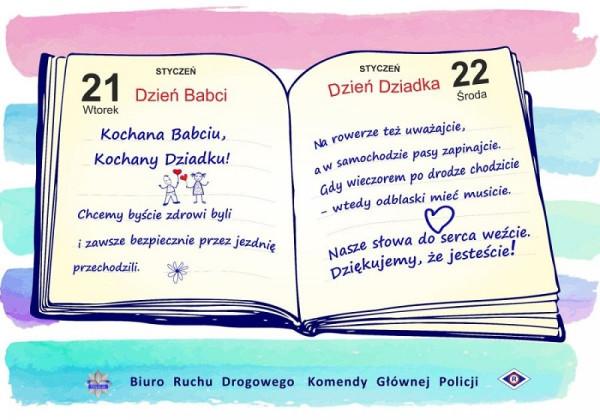 STYCZEŃ
21
Wtorek
Dzień Babci
Kochana Babciu,
Kochany Dziadku!
Chcemy byście zdrowi byli
i zawsze bezpiecznie przez jezdnię
przechodzili.
STYCZEŃ
Dzień Dziadka
22
Środa
Na rowerze też uważajcie,
a w samochodzie pasy zapinajcie.
Gdy wieczorem po drodze chodzicie
– wtedy odblaski mieć musicie.
Nasze słowa do serca weźcie.
Dziękujemy, że jesteście!
Biuro Ruchu Drogowego Komendy Głównej Policji
R